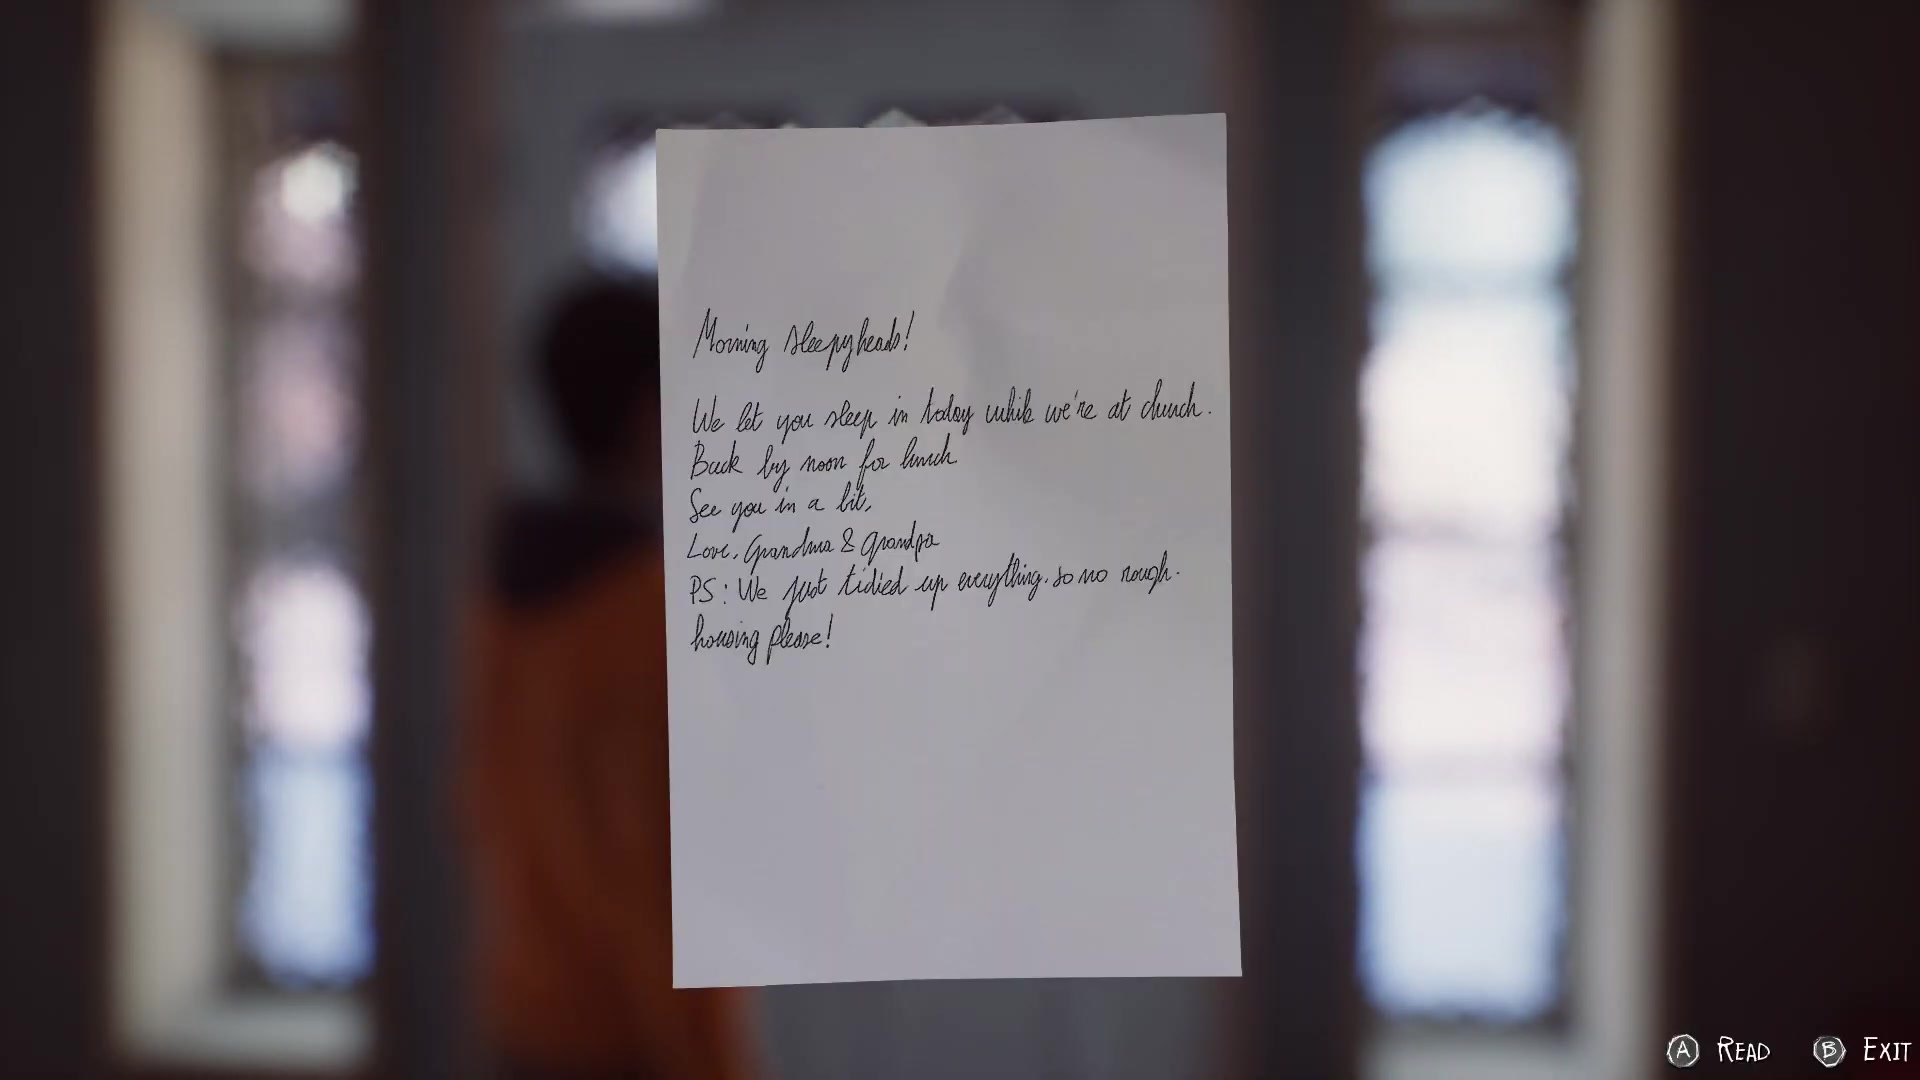 Morning sleepyheads!
We let you sleep in today while we're at church.
Back by noon for lunch
See you in a bit,
Love, Grandma & Grandpa
PS: We just tidied up everything, so no rough-
housing please!
A READ B EXIT